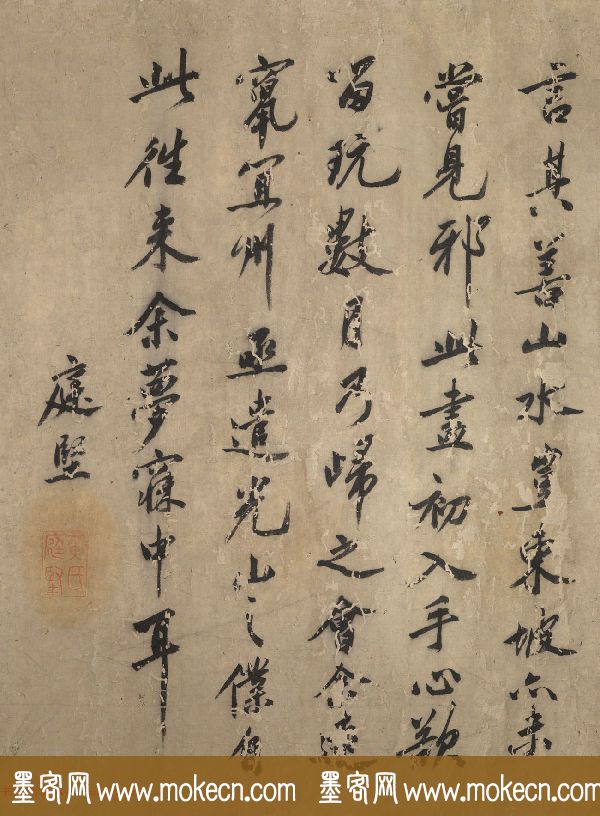 言其善山水豈東坡亦未
嘗見邪此畫初入手心欲
留玩數日乃歸之會余遷
竄宜州亟遣光山之僕自
此往來余夢寐中耳
庭堅
黃氏
庭堅
墨客网 www.mokecn.com 墨客网 www.mokecn.com